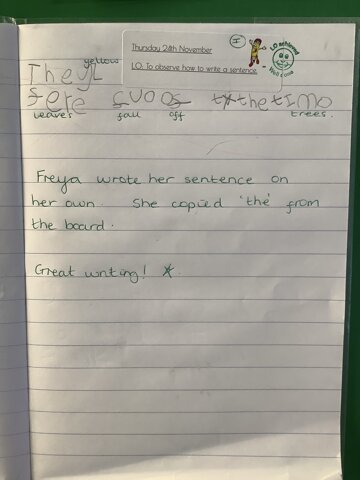 I
Thursday 24th November
LO: To observe how to write a sentence.
LO achieved
Well done
yellow
They
leaves fall off trees.
the
Freya wrote her sentence on
her own. She copied 'the' from
the board.
Great writing!